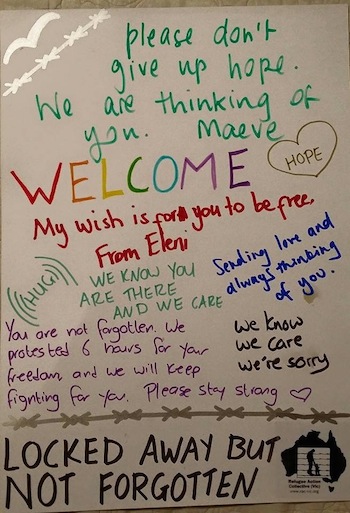 please don't
give up hope.
We are thinking of
you. Maeve
HOPE
WELCOME
My wish is for you to be free.
From Eleni
(HUG)
WE KNOW YOU
ARE THERE
AND WE CARE
Sending love and
always thinking
of you.
You are not forgotten. We
protested 6 hours for your
freedom, and we will keep
fighting for you. Please stay strong
we know
we care
we're sorry
LOCKED AWAY BUT
NOT FORGOTTEN
Refugee Action
Collective (Vic)
www.rac-vic.org